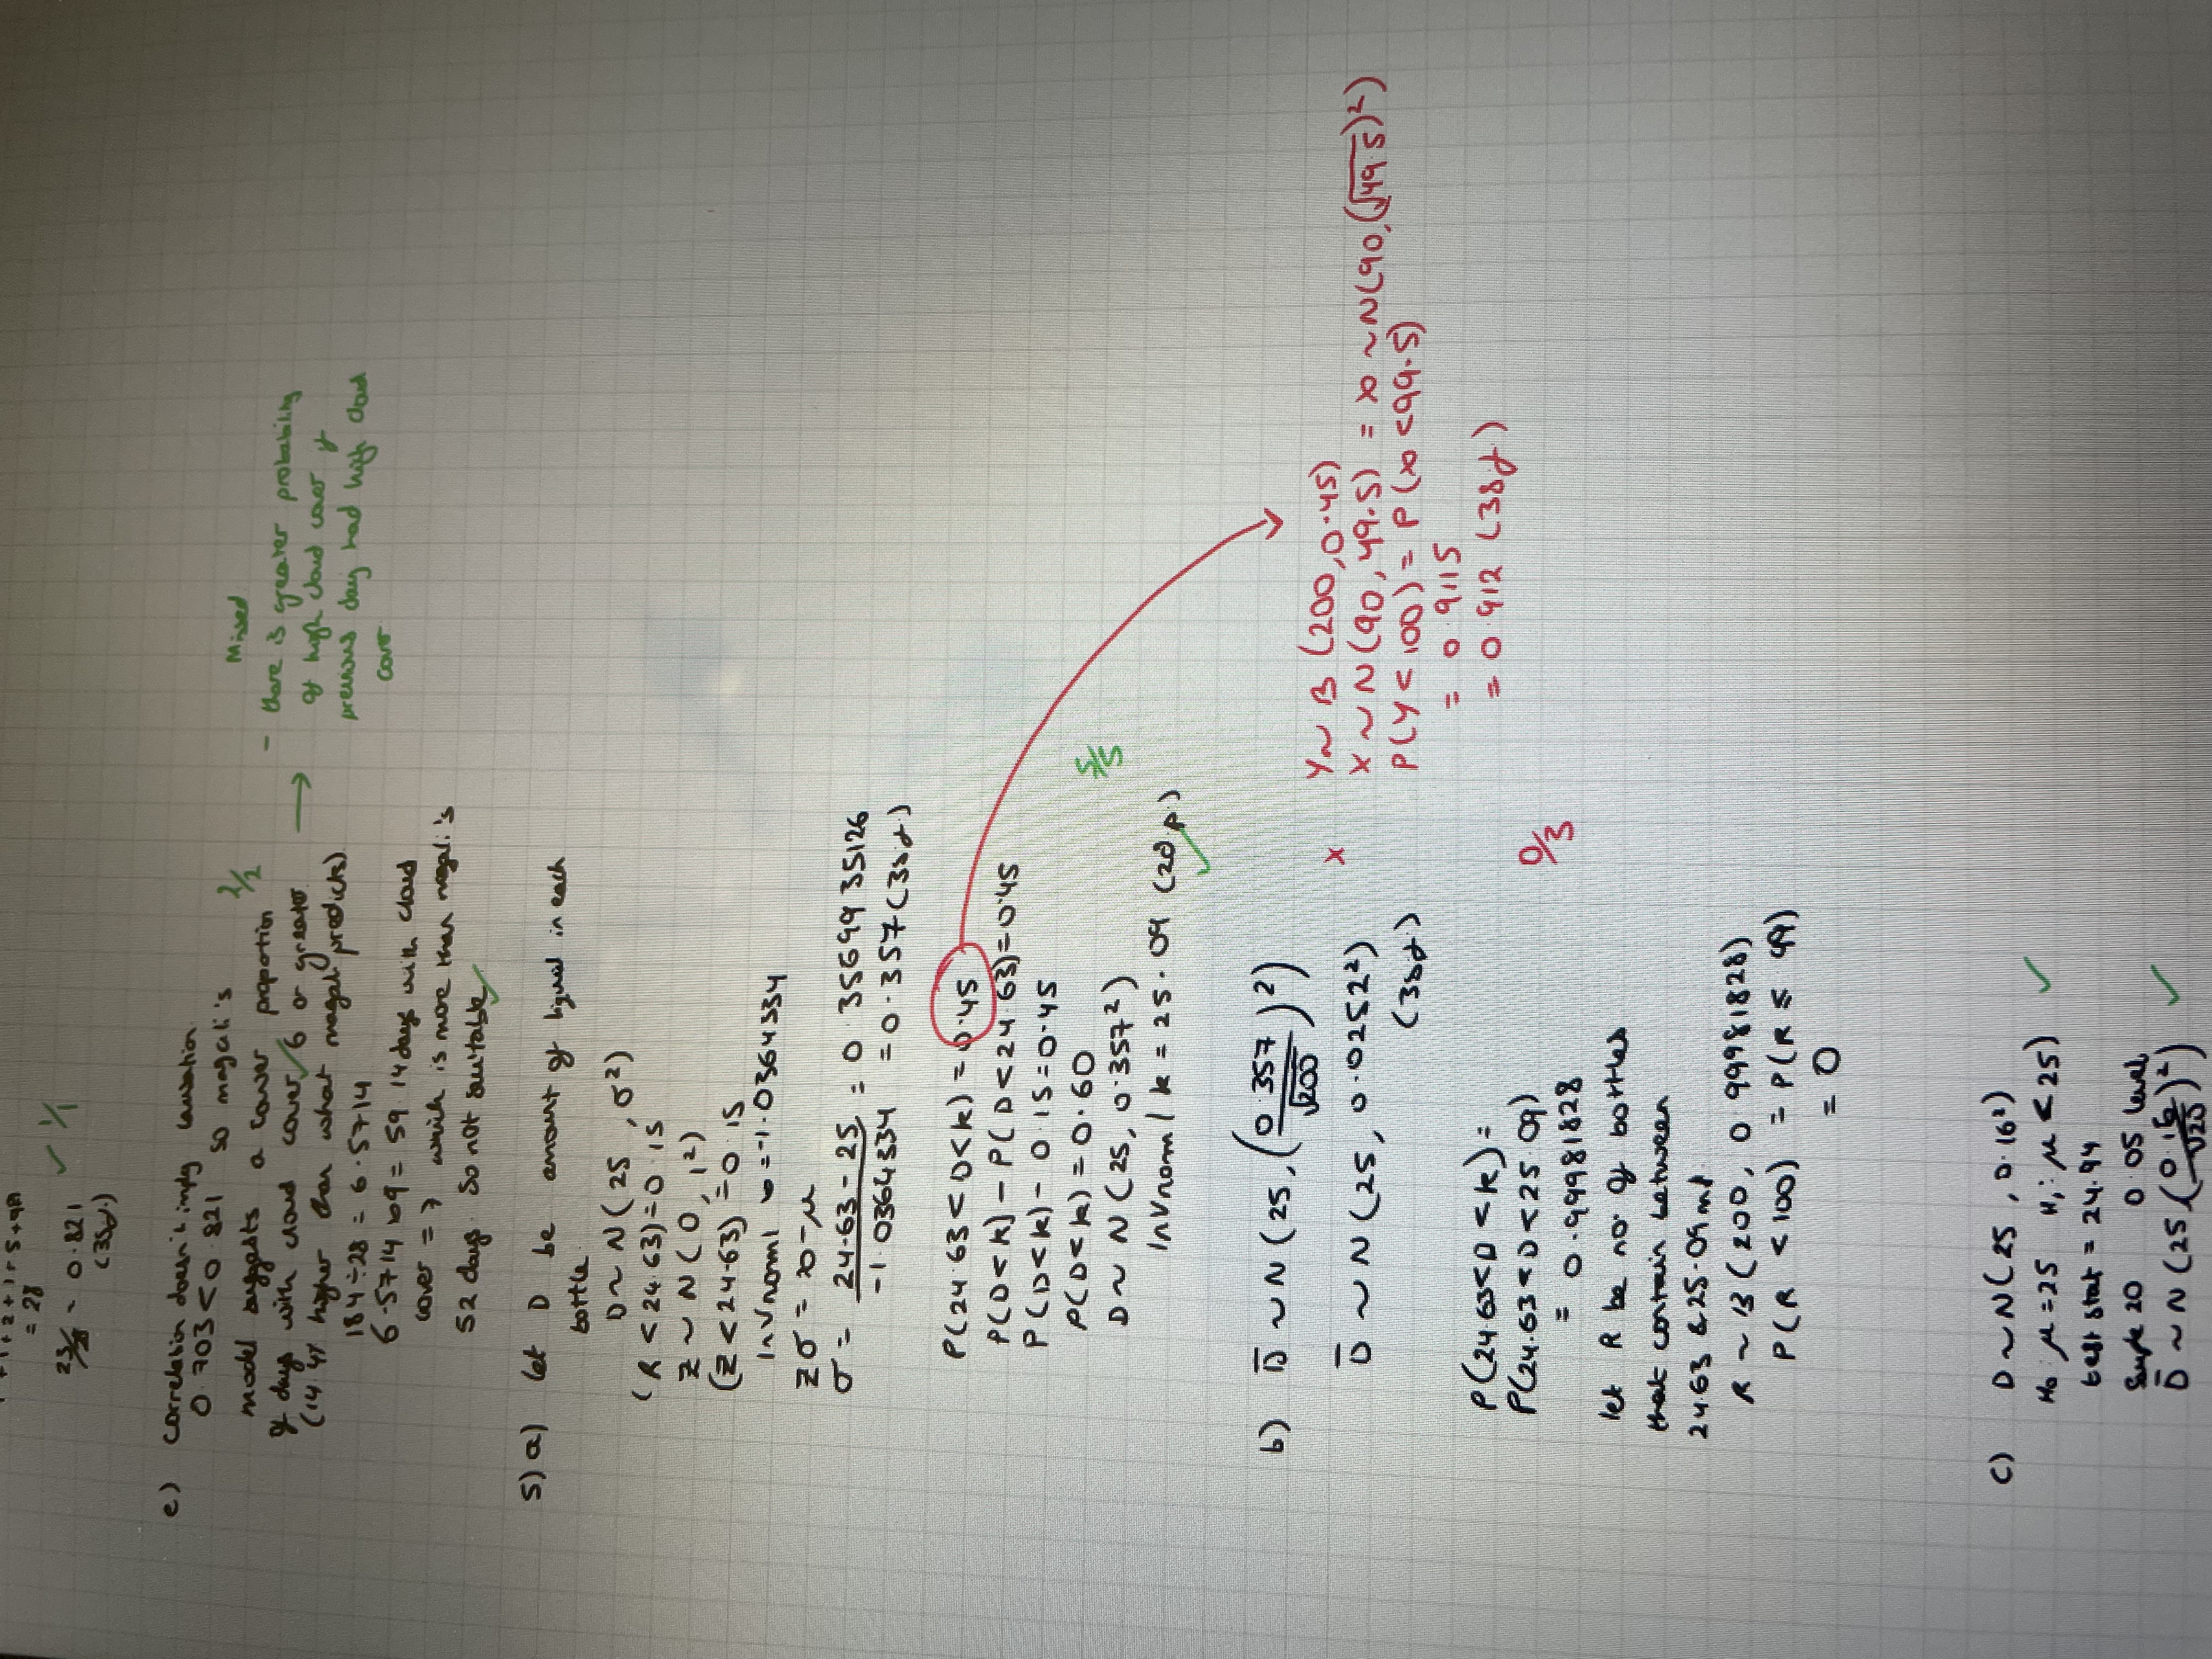 + 1 + 2 + 1 + 5 + 9A
= 28
23/28 = 0.821
(3sf)
✓ 1/1
e) Correlation doesn't imply causation
0.703 < 0.821 so magali's
model suggests a lower proportion
of days with cloud cover 6 or greater
(14.4% higher than what magali predicts)
184 ÷ 28 = 6.5714
6.5714 × 9 = 59.14 days with cloud
cover = 7 which is more than magali's
52 days. So not suitable ✓
2/2
Mixed
→ - there is greater probability
of high cloud cover if
previous day had high cloud
cover
5) a) let D be amount of liquid in each
bottle.
D ~ N(25, σ²)
(R < 24.63) = 0.15
Z ~ N(0, 1²)
(Z < 24.63) = 0.15
Invnorml x = -1.0364334
Zσ = x - μ
σ = 24.63 - 25 / -1.0364334 = 0.3569935126
= 0.357 (3sf)
P(24.63 < D < k) = 0.45
P(D < k) - P(D < 24.63) = 0.45
P(D < k) - 0.15 = 0.45
P(D < k) = 0.60
D ~ N(25, 0.357²)
Invnorml k = 25.09 (2dp) ✓
5/5
b) D̄ ~ N(25, (0.357/√200)²)
D̄ ~ N(25, 0.0252²)
(3sf)
P(24.63 < D < k) =
P(24.63 < D < 25.09)
= 0.99981828
let R be no. of bottles
that contain between
24.63 & 25.09ml
R ~ B(200, 0.99981828)
P(R < 100) = P(R ≤ 99)
= 0
×
0/3
Y ~ B(200, 0.45)
X ~ N(90, 49.5) = x ~ N(90, (√49.5)²)
P(Y < 100) = P(x < 99.5)
= 0.9115
= 0.912 (3sf)
c) D ~ N(25, 0.16²)
H₀: μ = 25 H₁: μ < 25) ✓
test stat = 24.94
Sample 20 0.05 level
D̄ ~ N(25, (0.16/√20)²) ✓